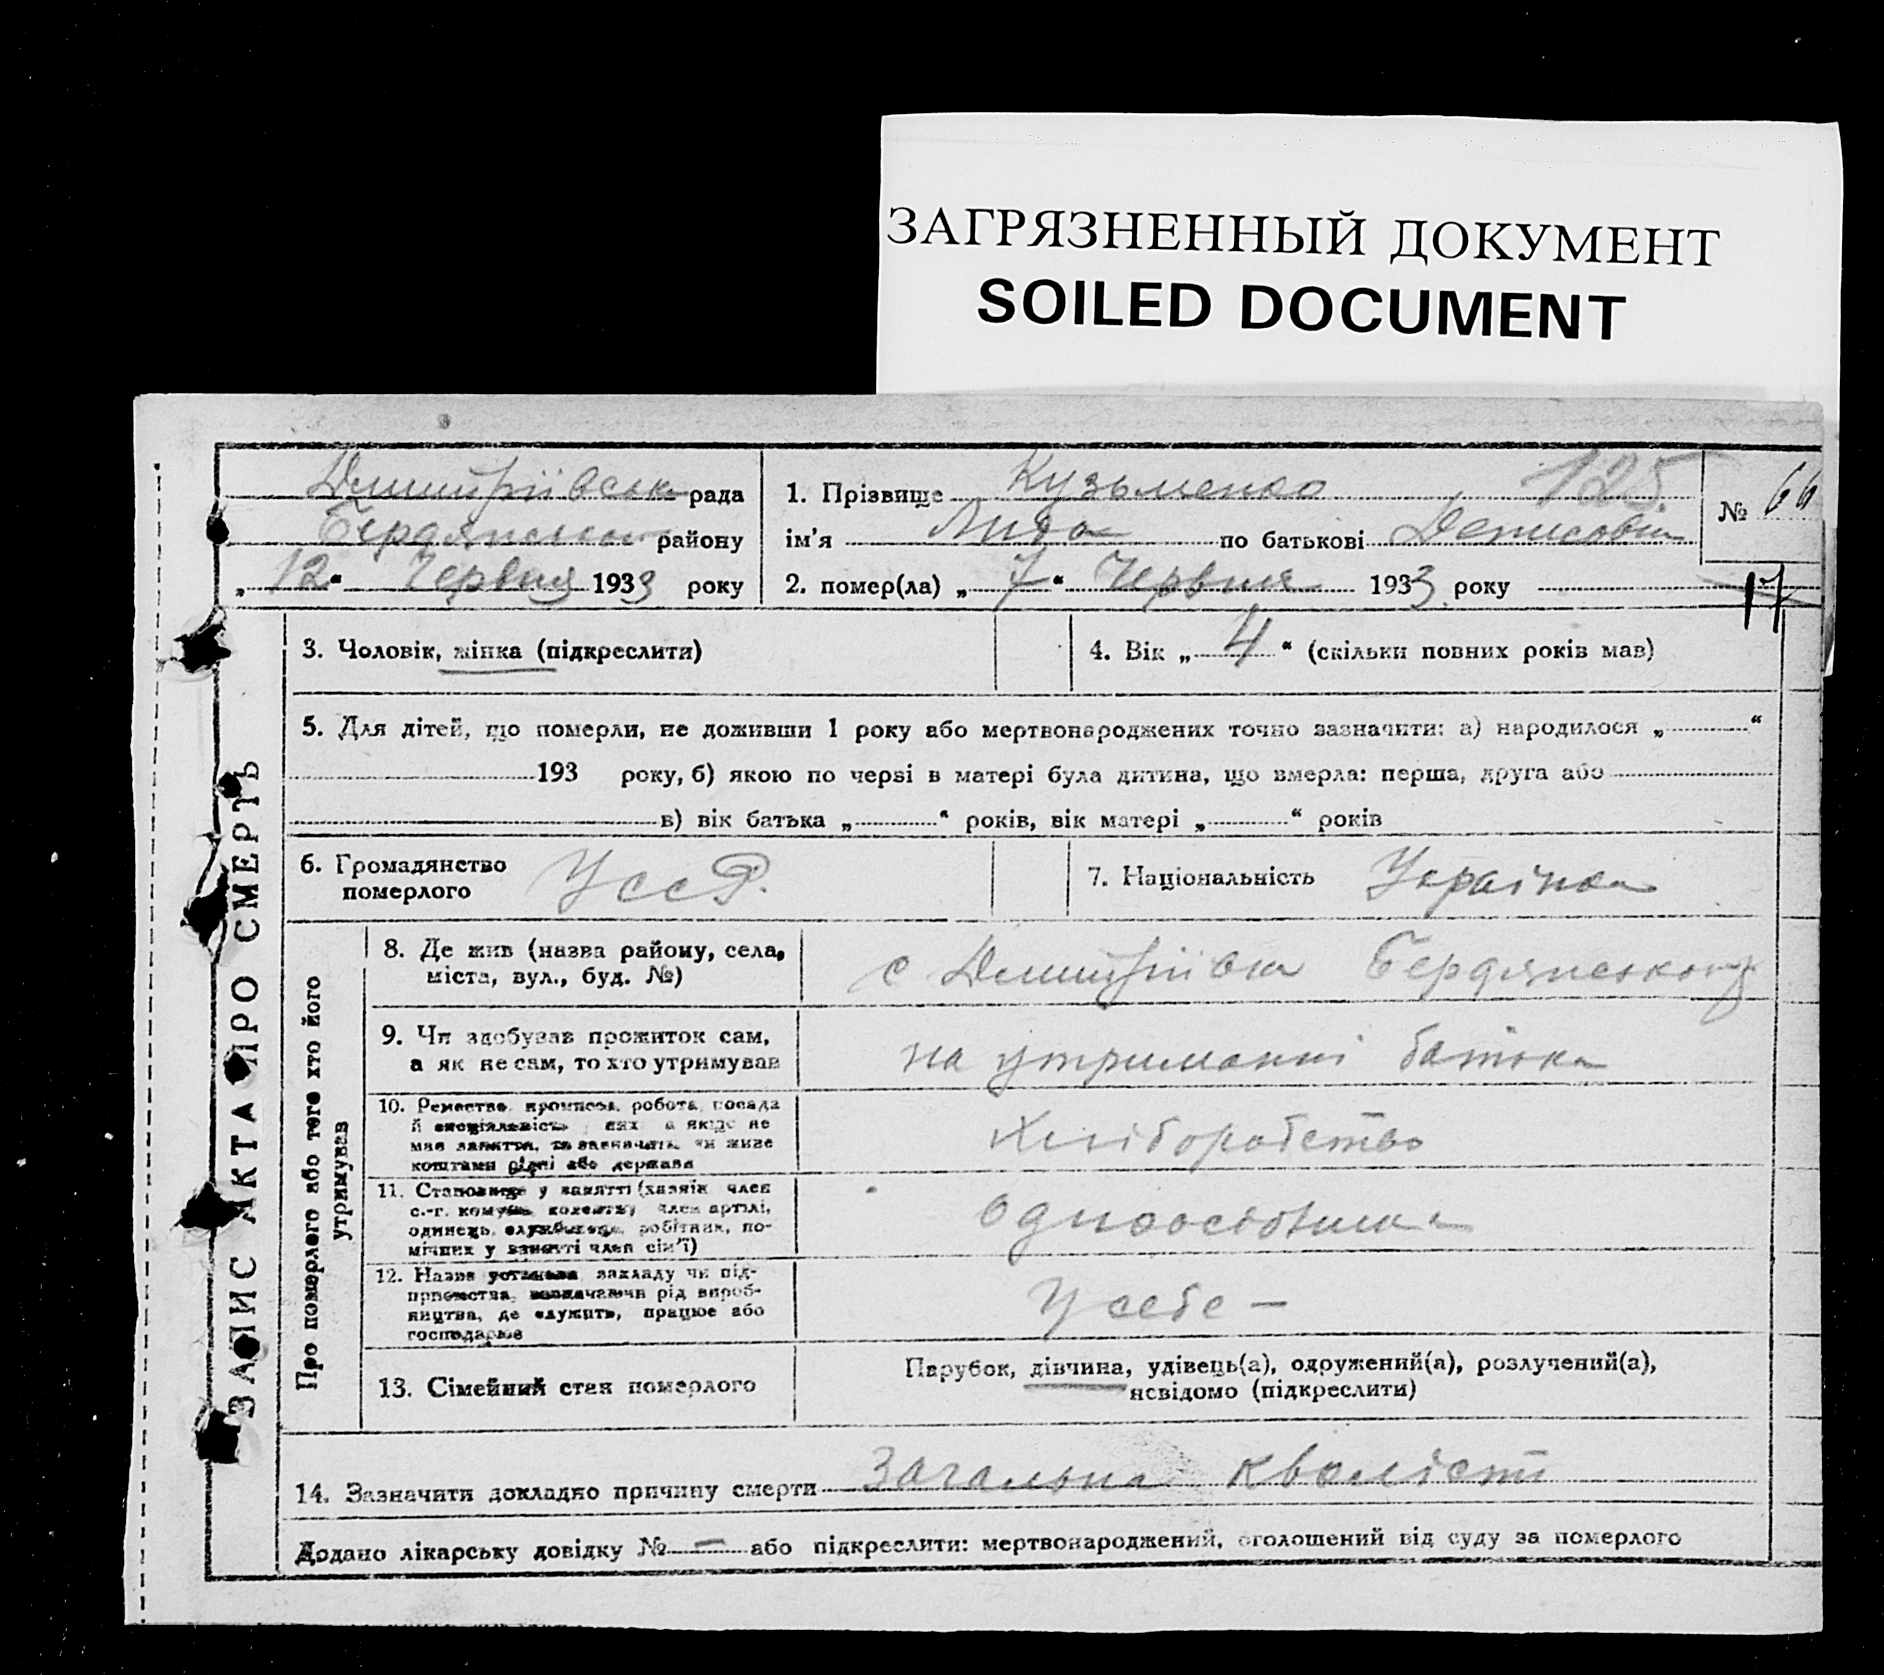 ЗАГРЯЗНЕННЫЙ ДОКУМЕНТ
SOILED DOCUMENT
Дмитріївська рада
Бердянського району
„12“ Червня 1933 року
1. Прізвище Кузьменко 125
ім'я Лида по батькові Денисовна
2. помер(ла) „7“ Червня 1933 року
№ 66
17
ЗАПИС АКТА ПРО СМЕРТЬ
3. Чоловік, жінка (підкреслити)
4. Вік „4“ (скільки повних років мав)
5. Для дітей, що померли, не доживши 1 року або мертвонароджених точно зазначити: а) народилося „ “
193 року, б) якою по черзі в матері була дитина, що вмерла: перша, друга або
в) вік батька „ “ років, вік матері „ “ років
6. Громадянство
померлого УССР.
7. Національність Українка
Про померлого або того хто його
утримував
8. Де жив (назва району, села,
міста, вул., буд. №)
с Дмитріївка Бердянського
9. Чи здобував прожиток сам,
а як не сам, то хто утримував
на утриманні батька
10. Ремество, промисел, робота, посада
й спеціяльність, а якщо не
мав заняття, то зазначити, чи живе
коштами рідні або держави
Хліборобство
11. Становище у занятті (хазяїн, член
с.-г. комуни, колективу, член артілі,
одинець, службовець, робітник, по-
мічник у занятті член сім'ї)
одноосібник
12. Назва установи, закладу чи під-
приємства, зазначаючи рід вироб-
ництва, де служить, працює або
господарює
У себе —
13. Сімейний стан померлого
Парубок, дівчина, удівець(а), одружений(а), розлучений(а),
невідомо (підкреслити)
14. Зазначити докладно причину смерти Загальна кволість
Додано лікарську довідку № — або підкреслити: мертвонароджений, оголошений від суду за померлого